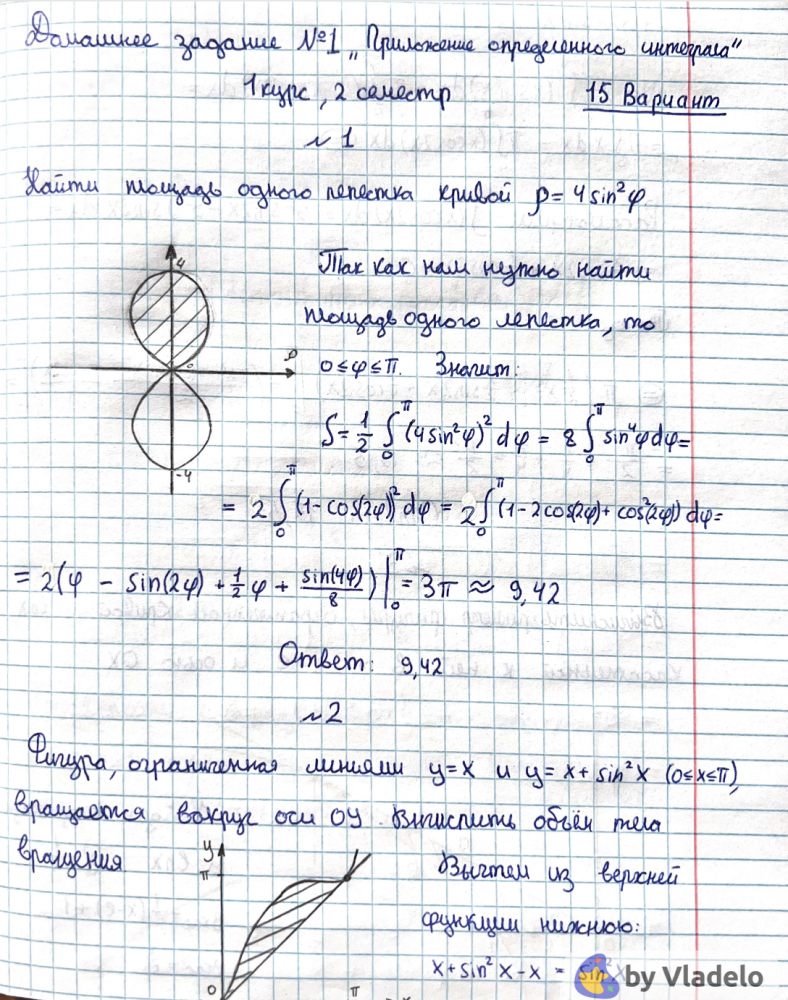 Домашнее задание №1 „Приложение определенного интеграла“
1 курс, 2 семестр 15 Вариант
№ 1
Найти площадь одного лепестка кривой ρ = 4 sin²φ.
4
Так как нам нужно найти
площадь одного лепестка, то
ρ
0
0 ≤ φ ≤ π. Значит:
-4
S = 1/2 ∫₀^π (4sin²φ)² dφ = 8 ∫₀^π sin⁴φ dφ =
= 2 ∫₀^π (1 - cos(2φ))² dφ = 2 ∫₀^π (1 - 2cos(2φ) + cos²(2φ)) dφ =
= 2(φ - sin(2φ) + 1/2 φ + sin(4φ)/8) |₀^π = 3π ≈ 9,42
Ответ: 9,42
№ 2
Фигура, ограниченная линиями y = x и y = x + sin²x (0 ≤ x ≤ π),
вращается вокруг оси OY. Вычислить объём тела
вращения
y
π
0
π
Вычтем из верхней
функции нижнюю:
x + sin²x - x = sin²x
by Vladelo